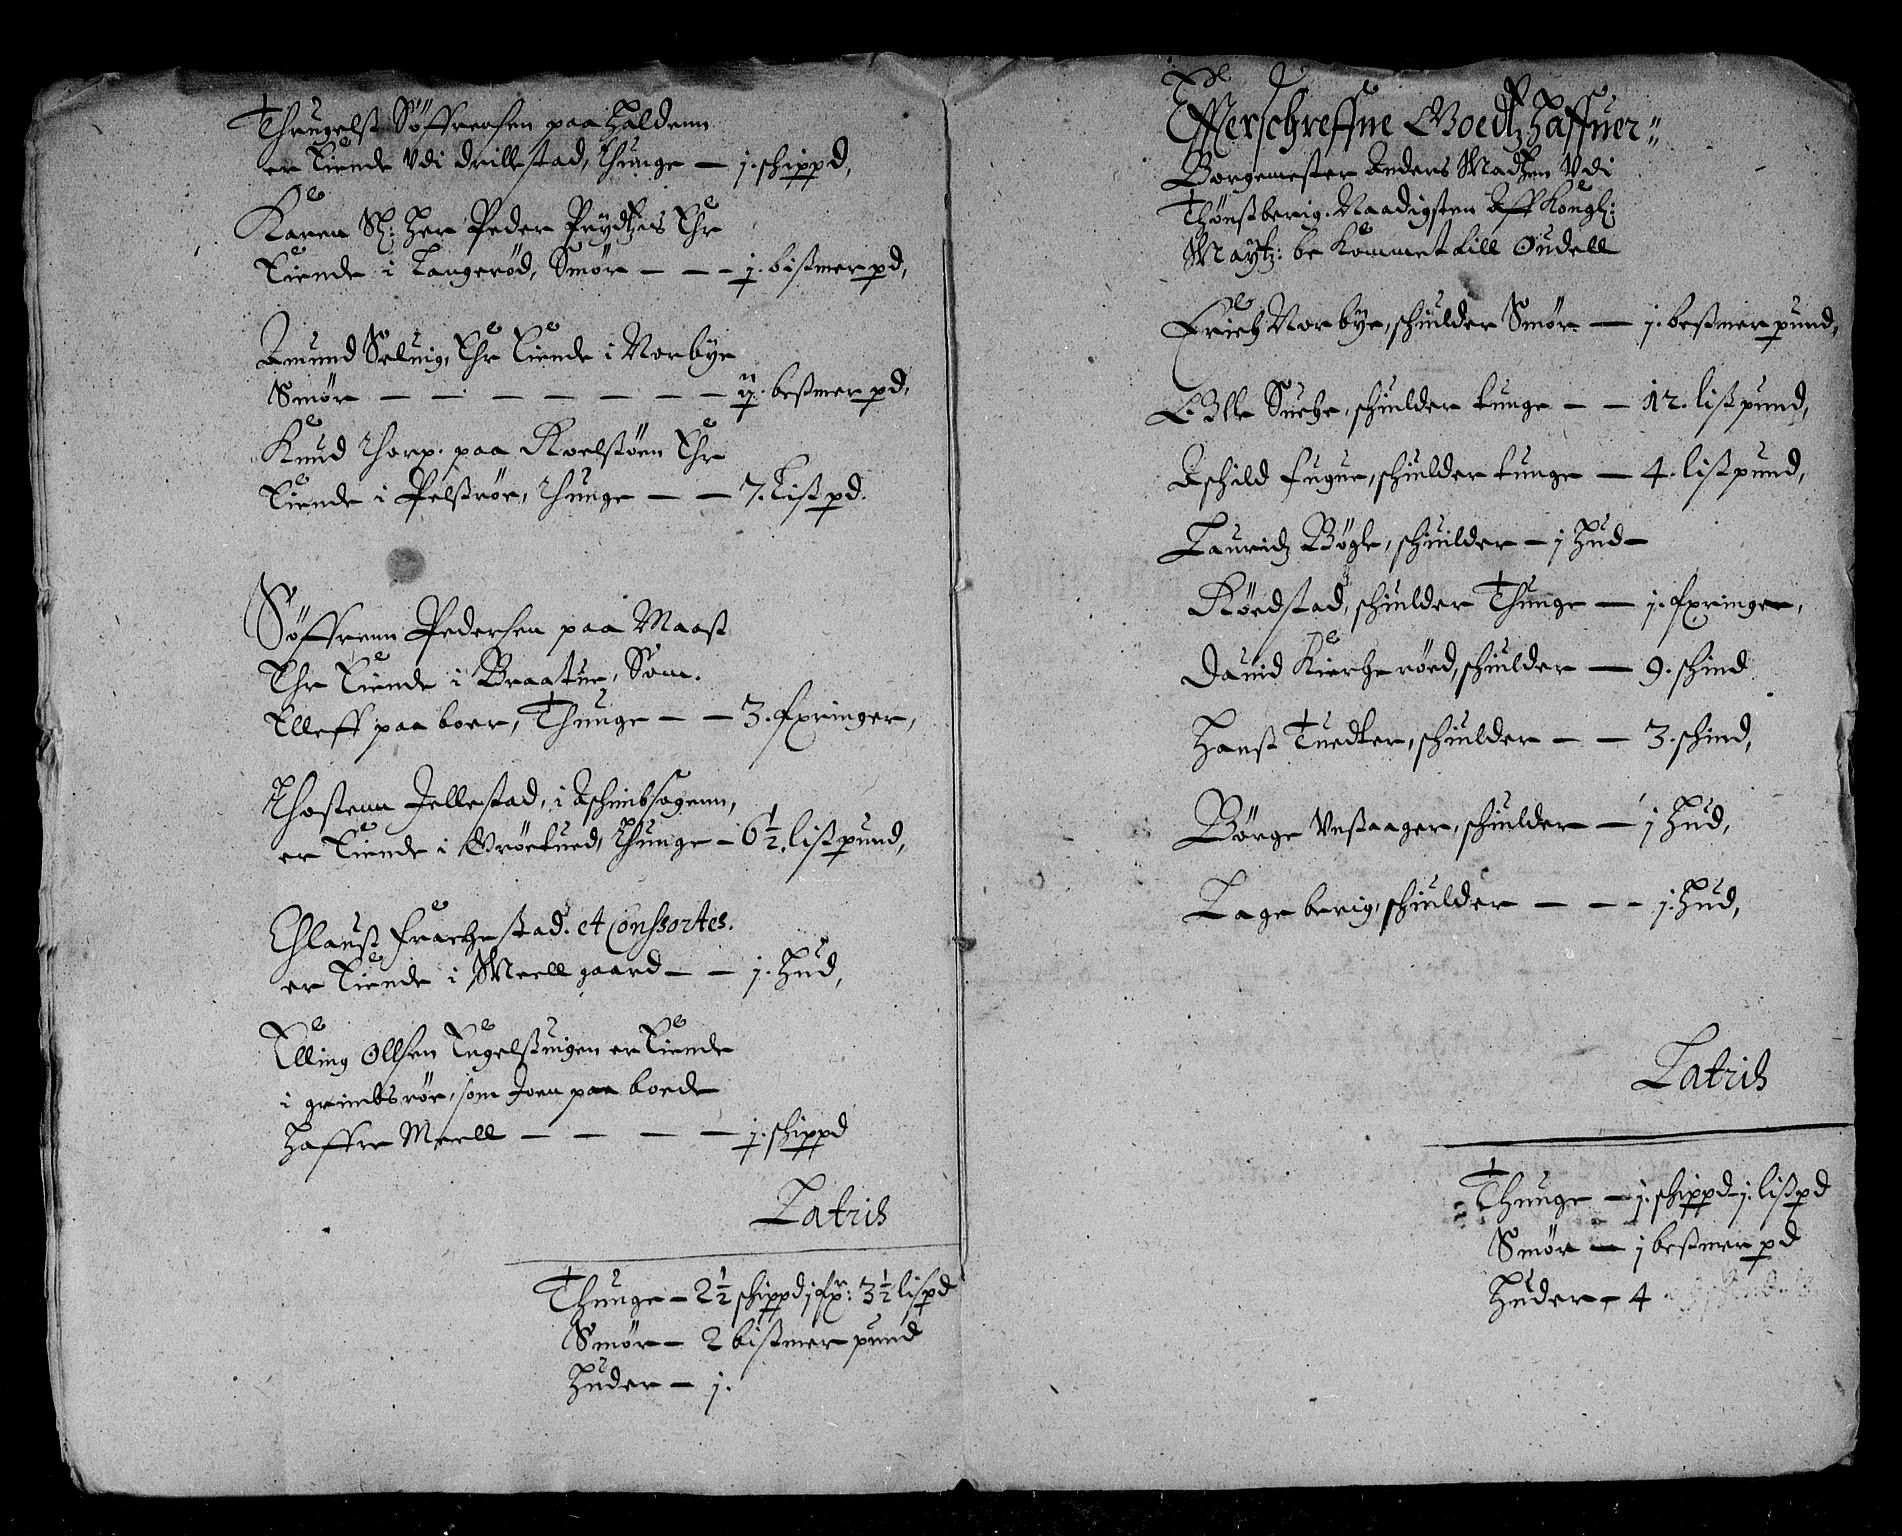 Thrugelß Söffrensen paa Haldenn
er Eiende Vdi drillestad, thunge — 1. schippd,
Karen Sl: Her Peder Prydtzis Ehr
Eiende i Langerød, Smør — — 1. bißmer pd,
Amund Seluig, Ehr Eiende i Norbye
Smør — — — — — — 1. beßmer pd,
Knud Thorp. paa Roelstöen Ehr
Eiende i Pelßrör, thunge — — 7. Lißpd.
Söffrenn Pedersen paa Maaß
Ehr Eiende i Braatue, Som.
Elleff paa boer, Thunge — — 3. fxringer,
Thostenn Jellestad, i Aschimbsogenn,
er Eiende i Gröetued, thunge — 6½. lißpund,
Chlauß frachestad. et Conssortes.
er Eiende i Meell gaard — — 1. Hud,
Elling Ollsen Engelßuigen er Eiende
i grimbsrör, som Joen paa boede
Haffre Meell — — — — 1. schippd
Latris
Thunge — 2½ schippd 1 fxr: 3½ lispd
Smør — 2 bißmer pund
Huder — 1.
Effterschreffne Goedtz Haffuer
Borgemester Anders Madtzen Vdi
Thönßberig. Naadigsten Aff Kongl:
Maytz: be kommet till Oudell
Erich Norbye, schulder Smør — 1. beßmer pund,
Olle Suche, schulder tunge — — 12. lißpund,
Aschild fugue, schulder tunge — 4. lißpund,
Lauridz Bögle, schuilder — 1 Hud —
Röedstad, schulder Thunge — 1. fxringer,
Dauid Kircherøed, schulder — 9. schind
Hanß Tuedter, schulder — — 3. schind,
Börge Vestaager, schulder — 1 Hud,
Lage berig, schulder — — — 1. Hud,
Latris
Thunge — 1. schippd 1. lißpd
Smør — 1 beßmer pd
Huder — 4